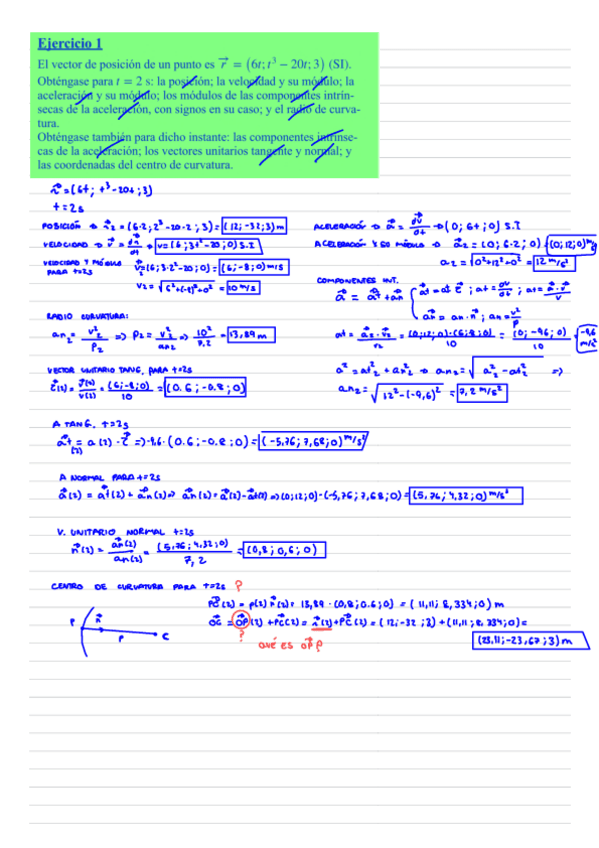 Ejercicio 1
El vector de posición de un punto es r⃗ = (6t; t³ − 20t; 3) (SI).
Obténgase para t = 2 s: la posición; la velocidad y su módulo; la
aceleración y su módulo; los módulos de las componentes intrín-
secas de la aceleración, con signos en su caso; y el radio de curva-
tura.
Obténgase también para dicho instante: las componentes intrínse-
cas de la aceleración; los vectores unitarios tangente y normal; y
las coordenadas del centro de curvatura.
r⃗ = (6t; t³-20t; 3)
t = 2s
POSICIÓN → r⃗₂ = (6·2; 2³-20·2; 3) = (12; -32; 3) m
VELOCIDAD → v⃗ = dr⃗/dt → v = (6; 3t²-20; 0) S.I
VELOCIDAD Y MÓDULO PARA t=2s
v⃗₂ = (6; 3·2²-20; 0) = (6; -8; 0) m/s
v₂ = √(6²+(-8)²+0²) = 10 m/s
ACELERACIÓN → a⃗ = dv⃗/dt → (0; 6t; 0) S.I
ACELERACIÓN Y SO MÓDULO → a⃗₂ = (0; 6·2; 0) = (0; 12; 0) m/
a₂ = √(0²+12²+0²) = 12 m/s²
COMPONENTES INT.
a⃗ = a⃗t + a⃗n { a⃗t = at·τ⃗ ; at = dv/dt ; at = a⃗·v⃗/v
a⃗n = an·n⃗ ; an = v²/ρ
RADIO CURVATURA:
an₂ = v₂²/ρ₂ => ρ₂ = v₂²/an₂ => 10²/7,2 = 13,89 m
at = a⃗₂·v⃗₂/v₂ = (0; 12; 0)·(6; 8; 0)/10 = (0; -96; 0)/10 = -9,6 m/s²
a² = at₂² + an₂² → an₂ = √(a₂² - at₂²) =>
an₂ = √(12²-(-9,6)²) = 7,2 m/s²
VECTOR UNITARIO TANG. PARA t=2s
τ⃗(2) = v⃗(2)/v(2) = (6; -8; 0)/10 = (0.6; -0.8; 0)
A TANG. t=2s
a⃗t(2) = a(2)·τ⃗ => -9,6·(0.6; -0.8; 0) = (-5,76; 7,68; 0) m/s²
A NORMAL PARA t=2s
a⃗(2) = a⃗t(2) + a⃗n(2) => a⃗n(2) = a⃗(2) - a⃗t(2) => (0; 12; 0) - (-5,76; 7,68; 0) = (5,76; 4,32; 0) m/s²
V. UNITARIO NORMAL t=2s
n⃗(2) = a⃗n(2)/an(2) = (5,76; 4,32; 0)/7,2 = (0,8; 0,6; 0)
CENTRO DE CURVATURA PARA t=2s ?
PC⃗(2) = ρ(2) n⃗(2) = 13,89·(0,8; 0.6; 0) = (11,11; 8,334; 0) m
OC⃗ = OP⃗(2) + PC⃗(2) = r⃗(2) + PC⃗(2) = (12; -32; 3) + (11,11; 8,334; 0) =
(23,11; -23,67; 3) m
P n⃗ ρ C
?
QUÉ ES OP⃗ ?